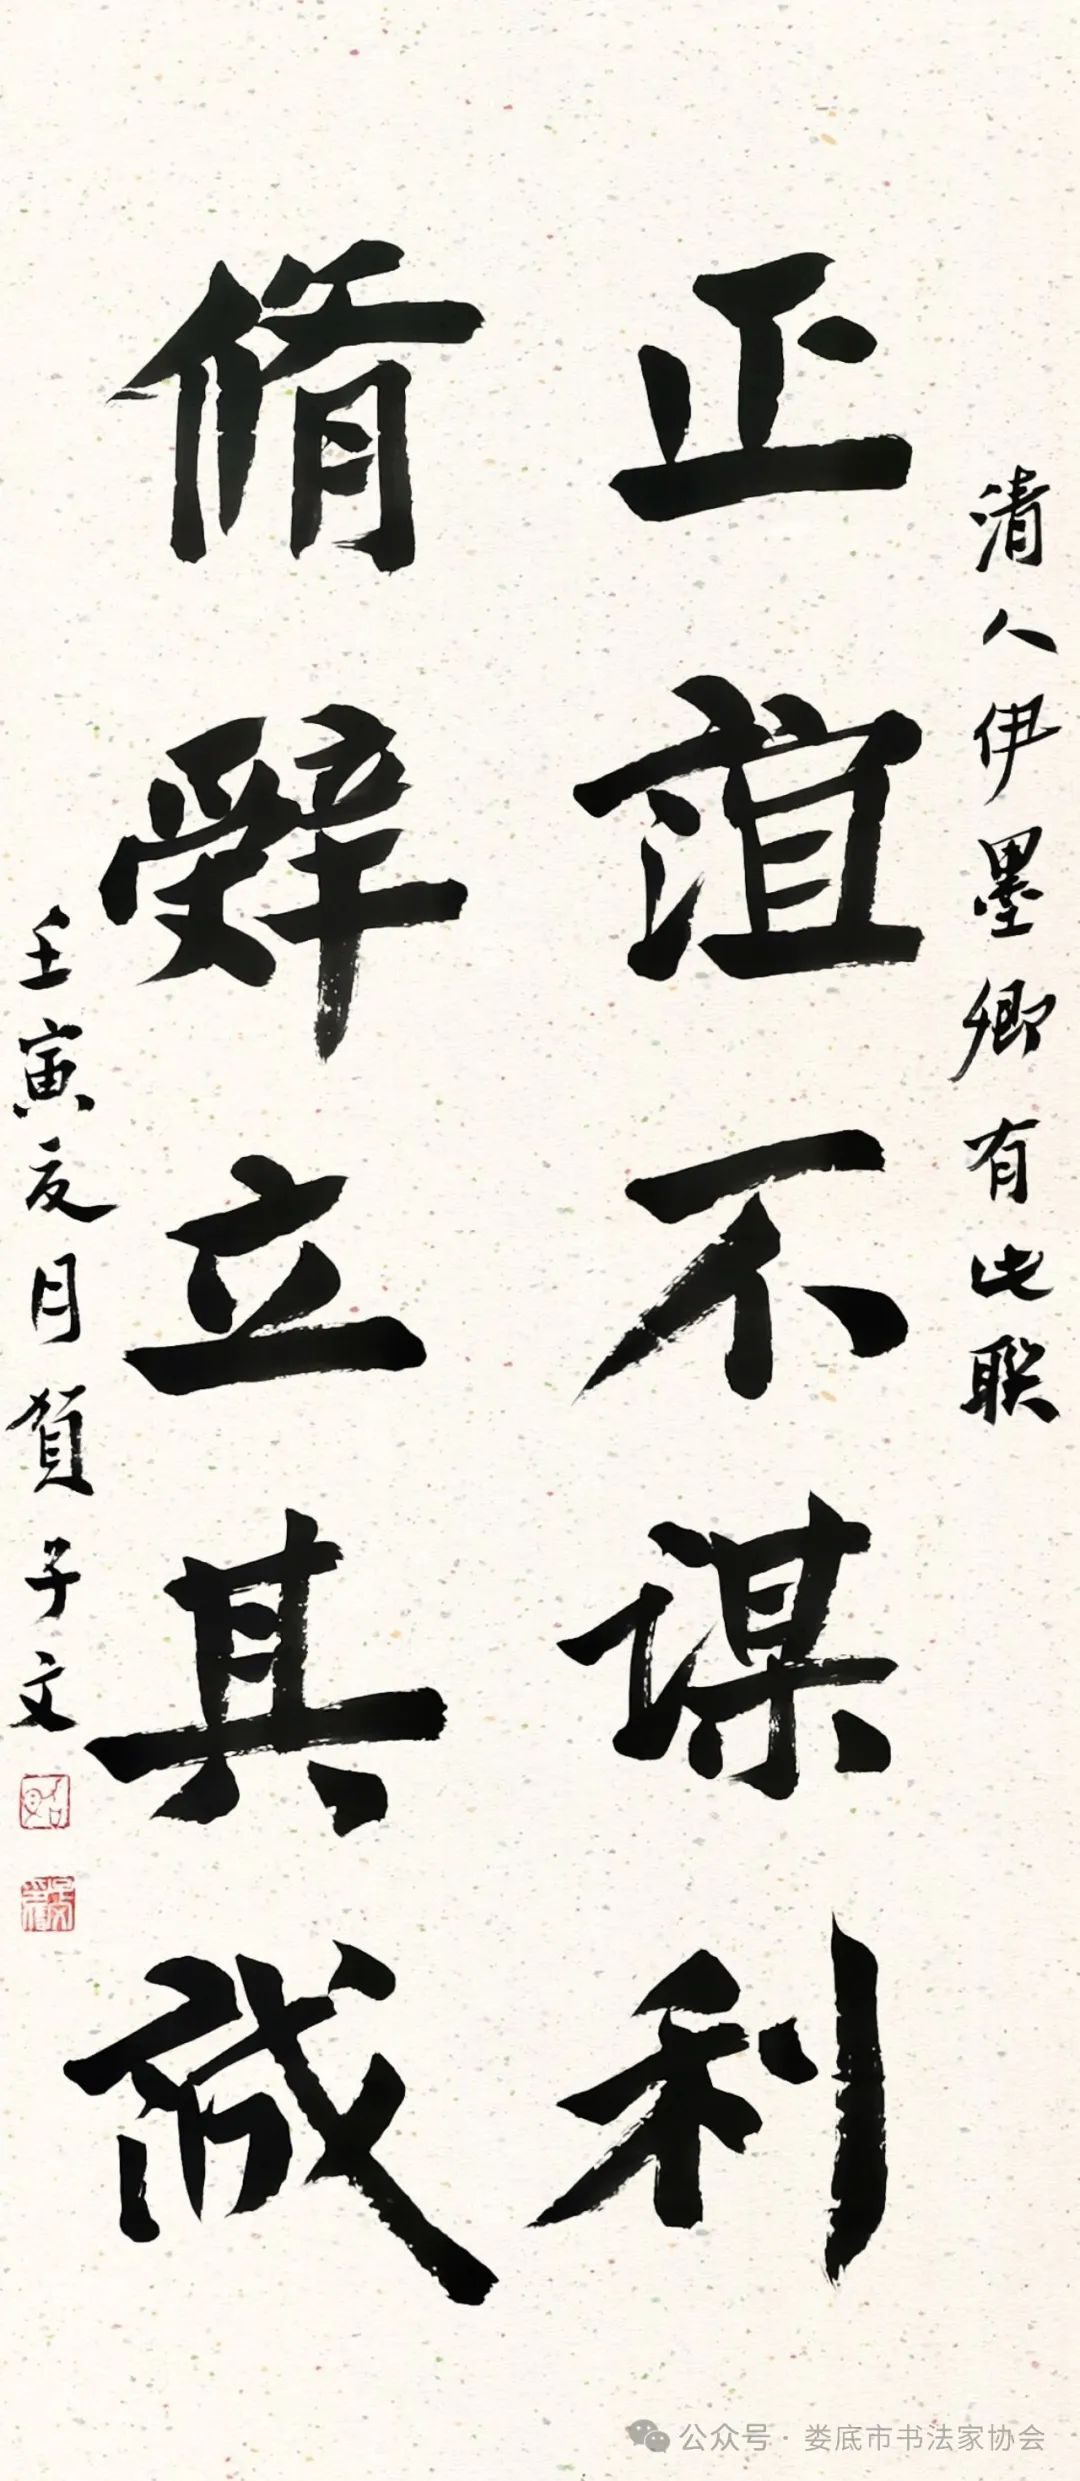 清人伊墨卿有此联
正誼不謀利
脩辤立其誠
壬寅夏月賀子文
公众号·娄底市书法家协会